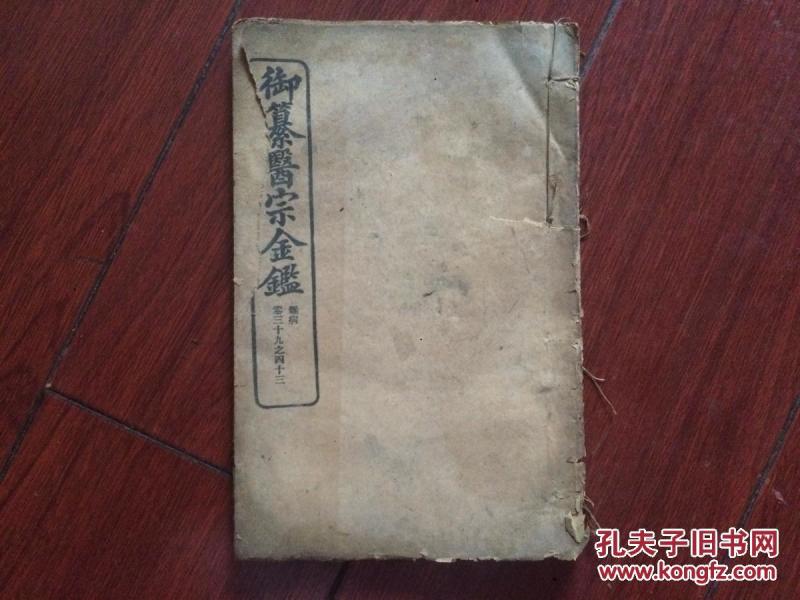 御纂醫宗金鑑
雜病
卷三十九之四十三
孔夫子旧书网
www.kongfz.com